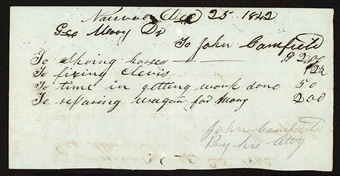 Nauvoo Dec 25 1842
Geo Mory Dr
To John Camfield
To Shoing horses
To fixing Clevis
To time in getting work done 50
To repairing wagon for Mory 200
John Camfield
By his Atty